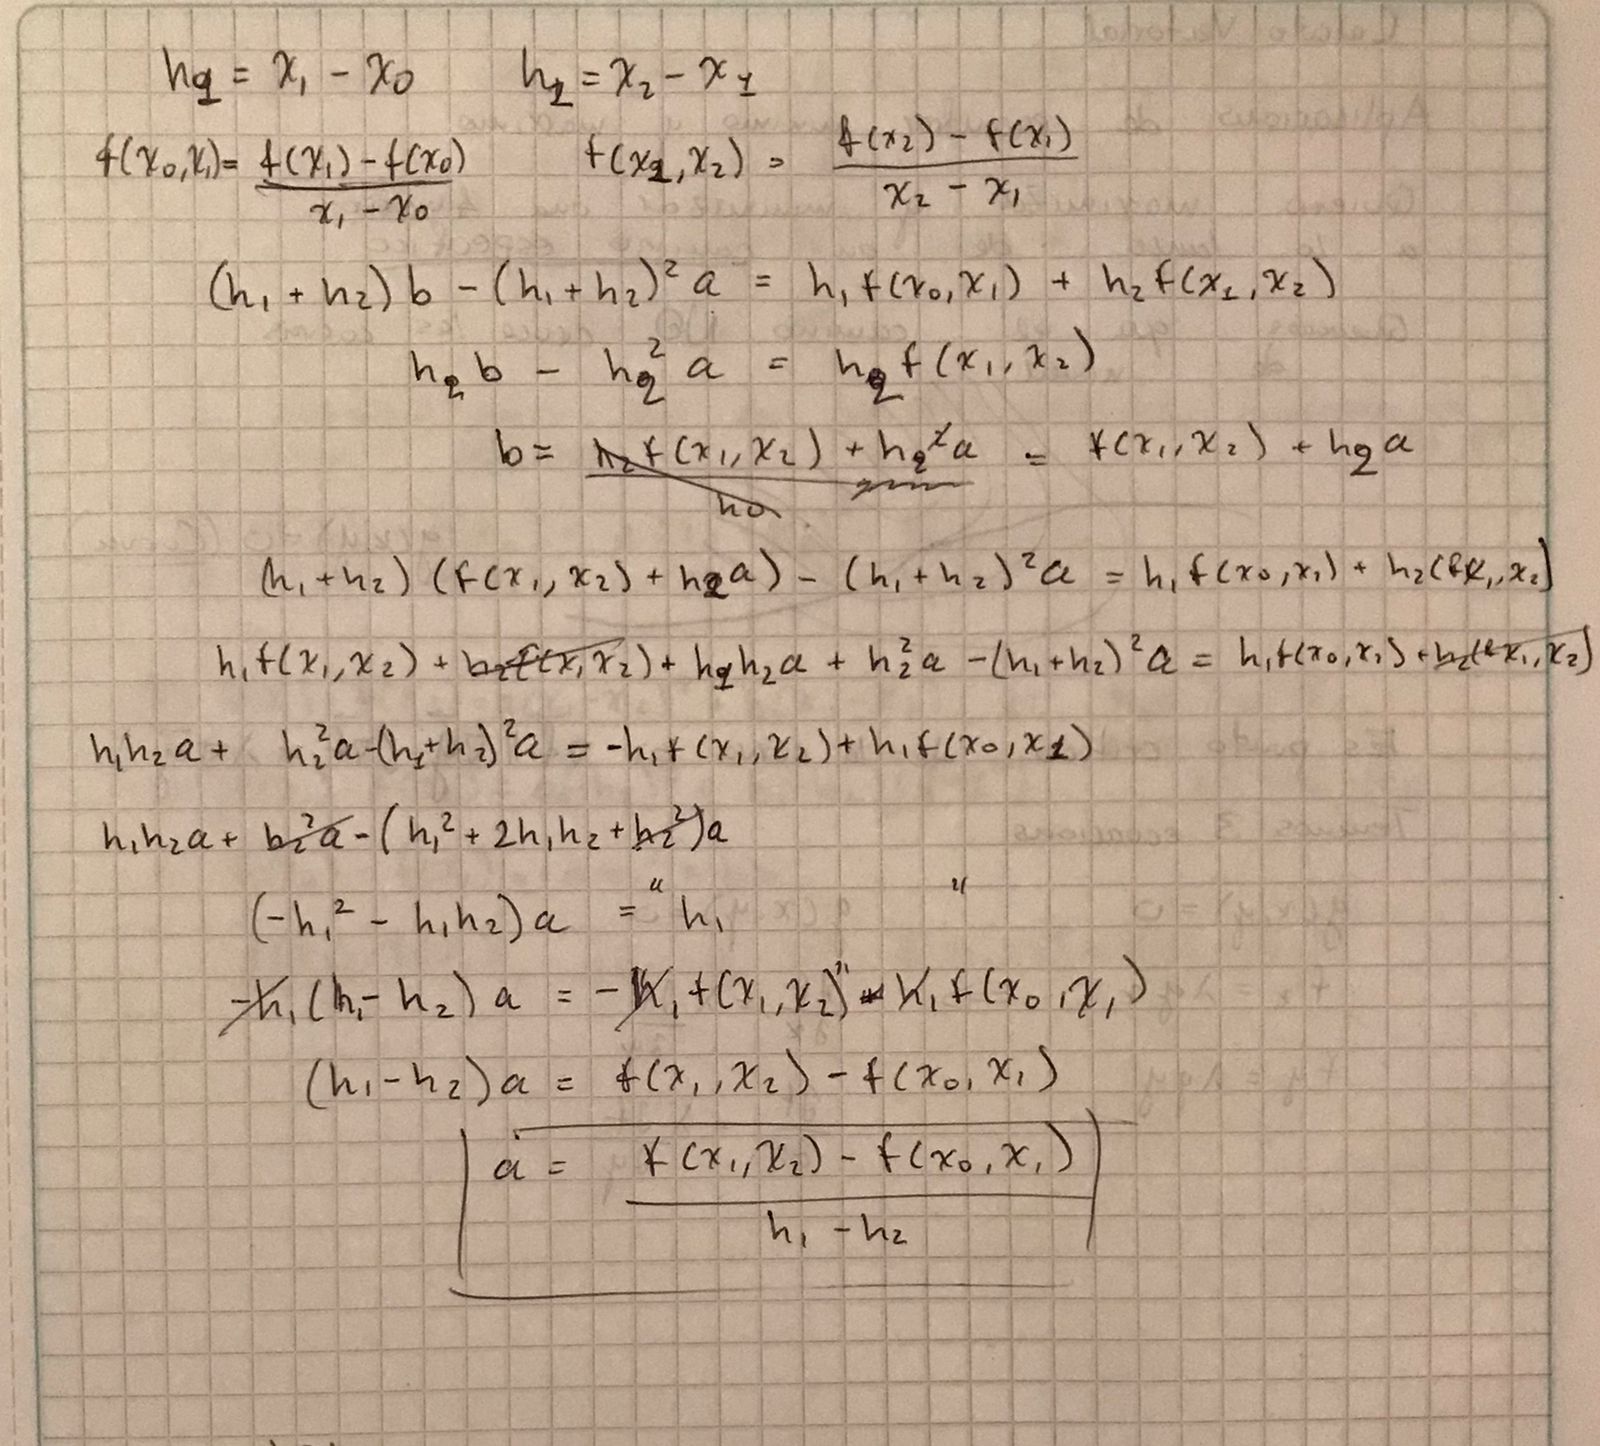 h₁ = x₁ - x₀ h₂ = x₂ - x₁
f(x₀,x₁) = (f(x₁) - f(x₀)) / (x₁ - x₀) f(x₁,x₂) = (f(x₂) - f(x₁)) / (x₂ - x₁)
(h₁ + h₂) b - (h₁ + h₂)² a = h₁ f(x₀,x₁) + h₂ f(x₁,x₂)
h₂ b - h₂² a = h₂ f(x₁,x₂)
b = (h₂ f(x₁,x₂) + h₂² a) / h₂ = f(x₁,x₂) + h₂ a
(h₁ + h₂) (f(x₁,x₂) + h₂ a) - (h₁ + h₂)² a = h₁ f(x₀,x₁) + h₂(f(x₁,x₂)
h₁ f(x₁,x₂) + h₂ f(x₁,x₂) + h₁h₂a + h₂²a - (h₁+h₂)² a = h₁f(x₀,x₁) + h₂(f x₁,x₂)
h₁h₂a + h₂²a - (h₁+h₂)²a = -h₁f(x₁,x₂) + h₁f(x₀,x₁)
h₁h₂a + h₂²a - (h₁² + 2h₁h₂ + h₂²)a
(-h₁² - h₁h₂)a = " h₁ "
-h₁(h₁ - h₂) a = -h₁ f(x₁,x₂)" - h₁ f(x₀,x₁)
(h₁ - h₂)a = f(x₁,x₂) - f(x₀,x₁)
a = (f(x₁,x₂) - f(x₀,x₁)) / (h₁ - h₂)